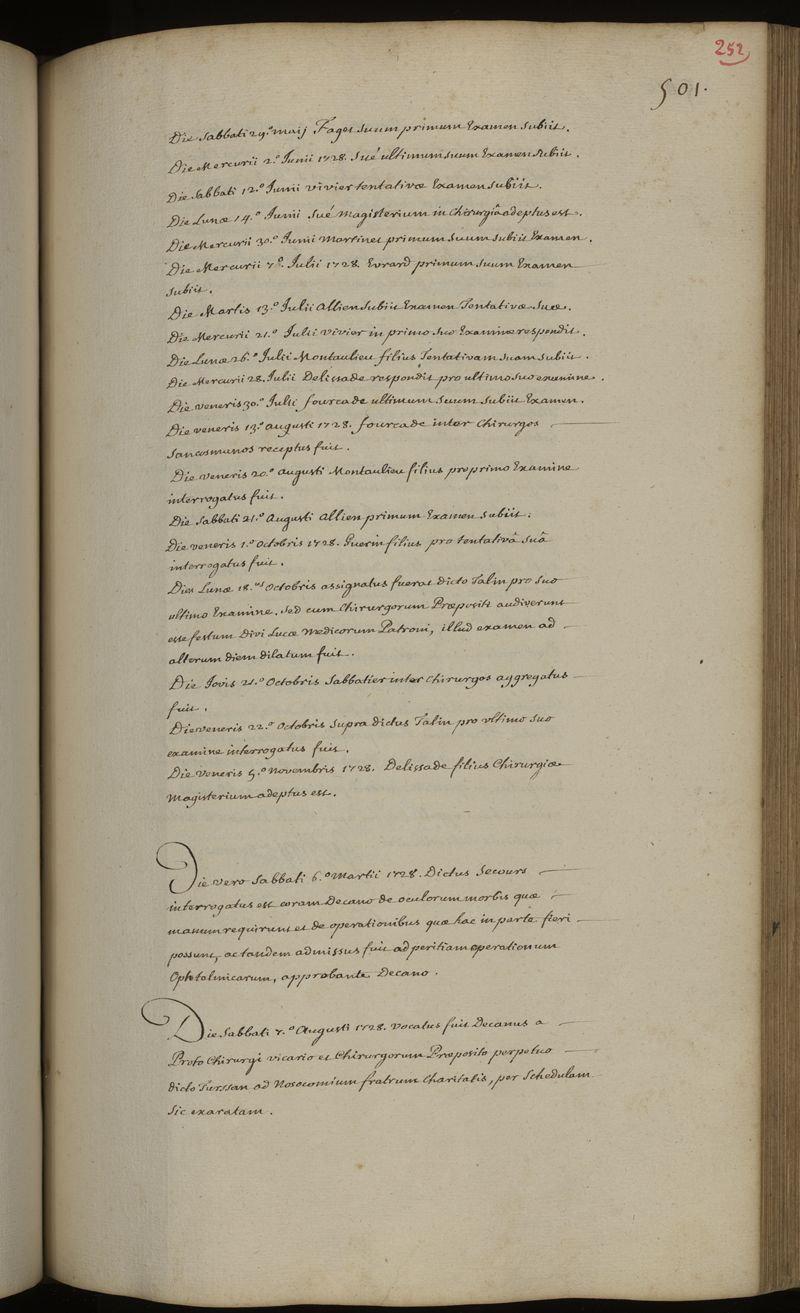 252
501.
Die Sabbati 29.° maij Fages suum primum Examen subiit.
Die Mercurii 2.° Junii 1728. Sué ultimum suum Examen subiit.
Die Sabbati 12.° Junii vivier tentativæ Examen subiit.
Die Lunæ 14.° Junii Sué Magisterium in chirurgiâ adeptus est.
Die Mercurii 30.° Junii Martinet primum suum subiit Examen.
Die Mercurii 7.° Julii 1728. Evrard primum suum Examen
subiit.
Die Martis 13.° Julii Allien subiit Examen Tentativæ suæ.
Die Mercurii 21.° Julii vivier in primo suo Examine respondit.
Die Lunæ 26.° Julii Montaulieu filius Tentativam suam subiit.
Die Mercurii 28. Julii Delissade respondit pro ultimo suo examine.
Die veneris 30.° Julii fourcade ultimum suum subiit Examen.
Die veneris 13.° augusti 1728. fourcade inter Chirurgos
Sancosmanos receptus fuit.
Die Veneris 20.° augusti Montaulieu filius pro primo Examine
interrogatus fuit.
Die Sabbati 21.° Augusti Allien primum Examen subiit.
Die veneris 1.° Octobris 1728. Guerin filius pro tentativâ suâ
interrogatus fuit.
Dies Lunæ 18.us Octobris assignatus fuerat dicto Talin pro suo
ultimo Examine. sed cum Chirurgorum Præpositi audiverunt
esse festum Divi Lucæ Medicorum Patroni, illud examen ad
alterum diem dilatum fuit.
Die Jovis 21.° Octobris Sabbatier inter Chirurgos aggregatus
fuit.
Die veneris 22.° Octobris supra dictus Talin pro ultimo suo
examine interrogatus fuit.
Die Veneris 5.° Novembris 1728. Delissade filius Chirurgiæ
Magisterium adeptus est.
Die vero Sabbati 6.° Martii 1728. Dictus Secours
interrogatus est coram Decano de oculorum morbis quæ
manum requirunt et de operationibus quæ hac in parte fieri
possunt, ac tandem admissus fuit ad peritiam operationum
Ophtalmicarum, approbante Decano.
Die Sabbati 7.° Augusti 1728. vocatus fuit Decanus a
Proto Chirurgi vicario et Chirurgorum Præposito perpetuo
dicto Turssan ad Nosocomium fratrum Charitatis, per Schedulam
sic exaratam.